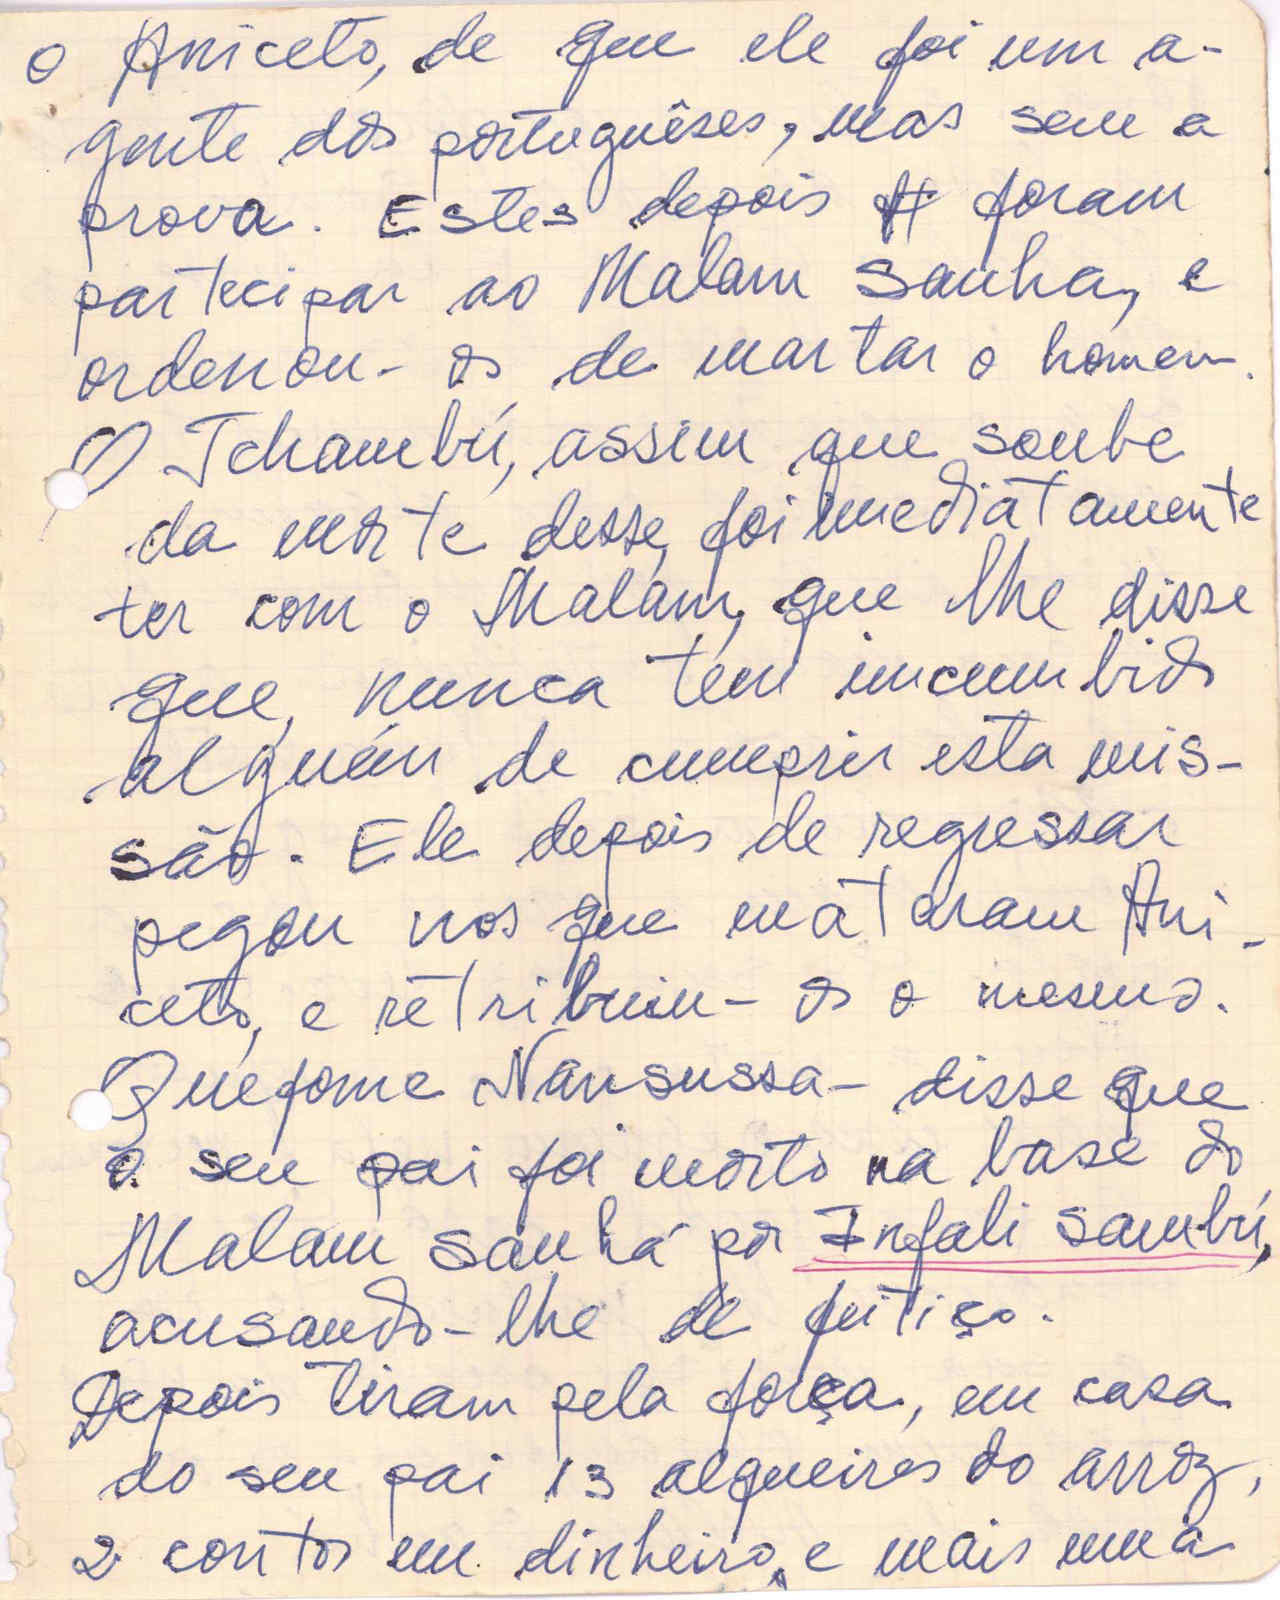 o Aniceto, de que ele foi um a-
gente dos portuguêses, mas sem a
prova. Estes depois foram
partecipar ao Malam Sanha, e
ordenou-os de martar o homem.
O Tchambú, assim que soube
da morte desse, foi imediatamente
ter com o Malam, que lhe disse
que, nunca tem imcumbido
alguém de cumprir esta mis-
são. Ele depois de regressar
pegou nos que mataram Ani-
ceto, e retribuiu-os o mesmo.
Quefome Nansussa- disse que
o seu pai foi morto na base do
Malam Sanhá por Infali Sambú,
acusando-lhe de feitiço.
Depois tiram pela força, em casa
do seu pai 13 alqueires do arroz,
2 contos em dinheiro, e mais uma